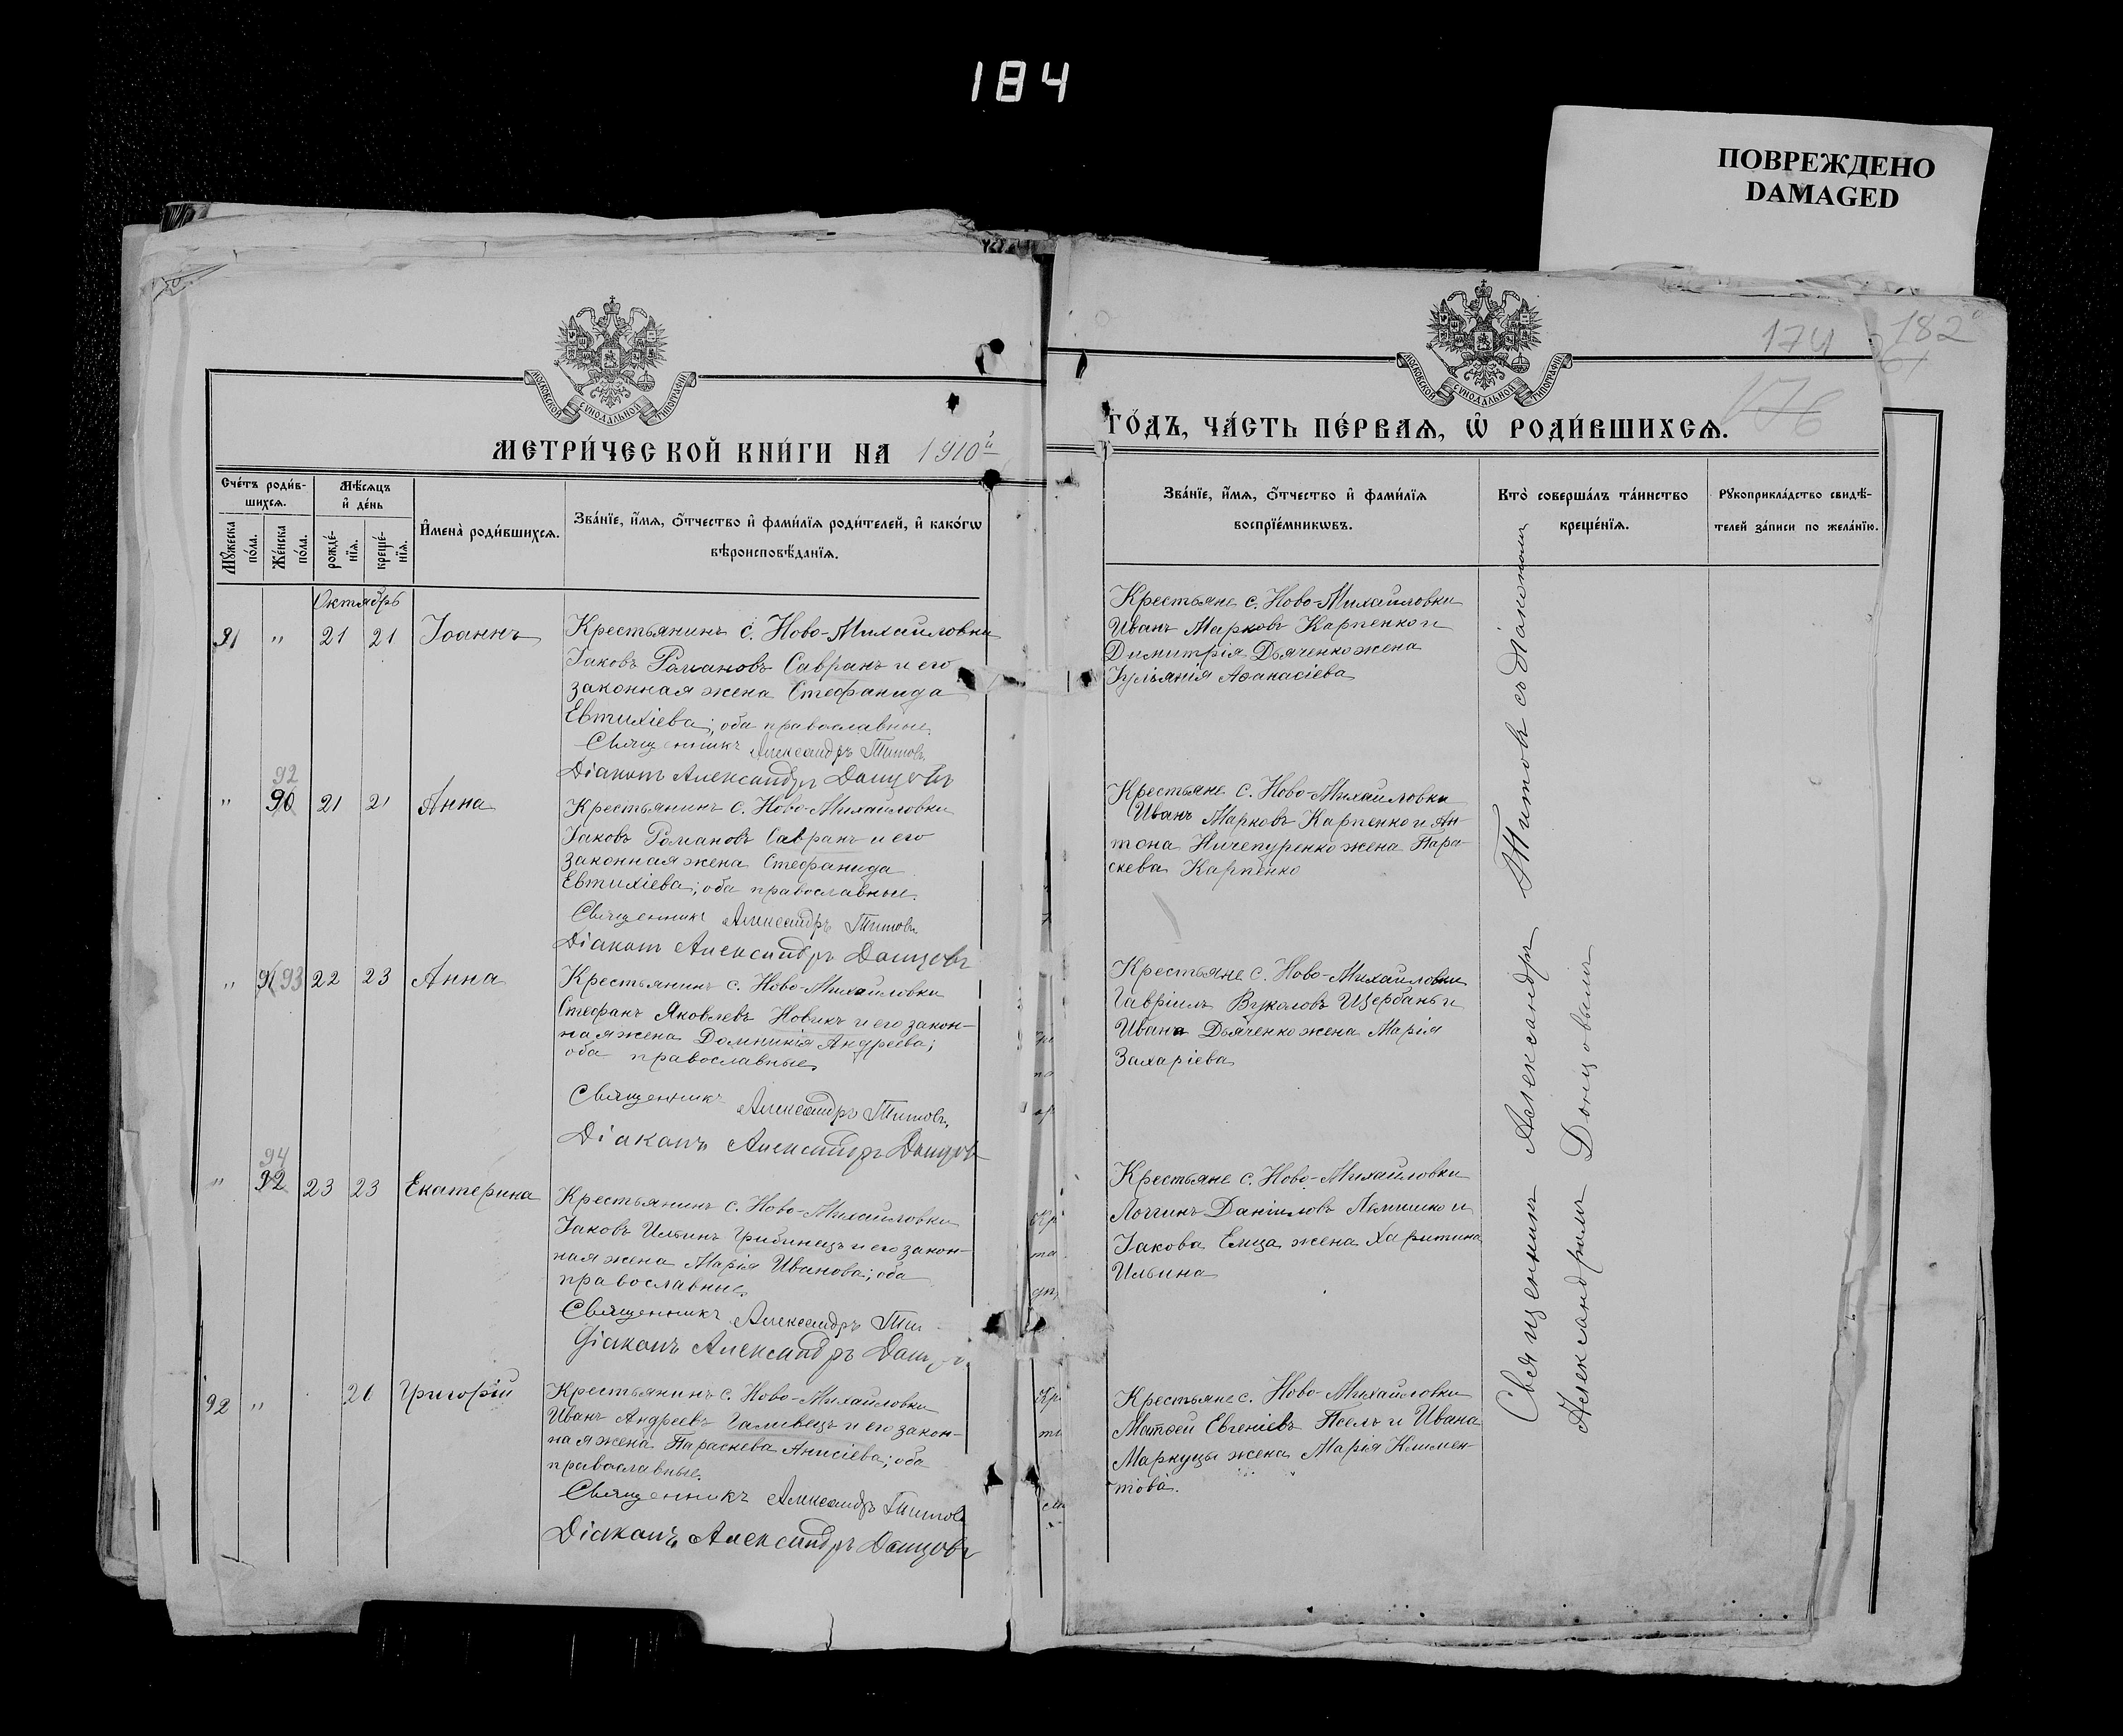 184
ПОВРЕЖДЕНО
DAMAGED
МОСКОВСКОЙ СУНОДАЛЬНОЙ ТИПОГРАФІИ
МЕТРИ́ЧЕСКОЙ КНИ́ГИ НА 1910й
Сче́тъ роди́в-
шихсѧ.
Мѣ́сѧцъ
и҆ де́нь
Мꙋ́жеска
по́ла.
Же́нска
по́ла.
рожде́-
нїѧ.
креще́-
нїѧ.
И҆мена̀ роди́вшихсѧ.
Зва́нїе, и҆́мѧ, ѻ҆́тчество и҆ фами́лїѧ роди́телей, и҆ како́гѡ
вѣроисповѣ́данїѧ.
Октябрь
91 " 21 21 Іоаннъ
Крестьянинъ с. Ново-Михайловки
Іаковъ Романовъ Савранъ и его
законная жена Стефанида
Евтихіева; оба православные.
Священникъ Александръ Титовъ
Діаконъ Александръ Донцовъ
92
" 90 21 21 Анна
Крестьянинъ с. Ново-Михайловки
Іаковъ Романовъ Савранъ и его
законная жена Стефанида
Евтихіева; оба православные.
Священникъ Александръ Титовъ
Діаконъ Александръ Донцовъ
" 91 93 22 23 Анна
Крестьянинъ с. Ново-Михайловки
Стефанъ Яковлевъ Новикъ и его закон-
ная жена Домникія Андреева;
оба православные
Священникъ Александръ Титовъ
Діаконъ Александръ Донцовъ
94
" 92 23 23 Екатерина
Крестьянинъ с. Ново-Михайловки
Іаковъ Ильинъ Грибинецъ и его закон-
ная жена Марія Иванова; оба
православные.
Священникъ Александръ Тит
Діаконъ Александръ Донцо
92 " 26 Григорій
Крестьянинъ с. Ново-Михайловки
Иванъ Андреевъ Галивецъ и его закон-
ная жена Параскева Анисіева; оба
православные.
Священникъ Александръ Титовъ
Діаконъ Александръ Донцовъ
174
182
176
ГО́ДЪ, ЧА́СТЬ ПЕ́РВАѦ, Ѡ҆ РОДИ́ВШИХСѦ.
МОСКОВСКОЙ СУНОДАЛЬНОЙ ТИПОГРАФІИ
Зва́нїе, и҆́мѧ, ѻ҆́тчество и҆ фами́лїѧ
воспрїе́мникѡвъ.
Кто̀ соверша́лъ та́инство
креще́нїѧ.
Рꙋкоприкла́дство свидѣ́-
телей за́писи по жела́нїю.
Крестьяне с. Ново-Михайловки
Иванъ Марковъ Карпенко и
Димитрія Дьяченко жена
Іуліанія Аѳанасіева
Крестьяне с. Ново-Михайловки
Иванъ Марковъ Карпенко и Ан-
тона Ничепуренко жена Пара-
скева Карпенко
Крестьяне с. Ново-Михайловки
Гавріилъ Вуколовъ Щербань и
Ивана Дьяченко жена Марія
Захаріева
Крестьяне с. Ново-Михайловки
Логгинъ Даніиловъ Лемишко и
Іакова Елца жена Харитина
Ильина
Крестьяне с. Ново-Михайловки
Матѳей Евгеніевъ Псель и Ивана
Маркуцы жена Марія Климен-
това.
Священникъ Александръ Титовъ съ діакономъ
Александромъ Донцовымъ